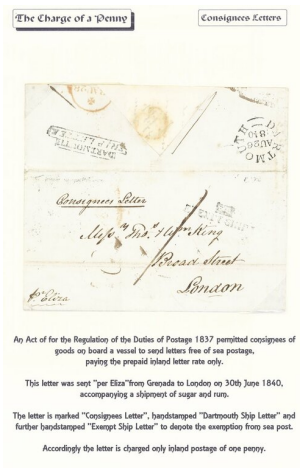 The Charge of a Penny
Consignees Letters
DARTMOUTH
SHIP LETTER
DARTMOUTH
AU 26
1840
Consignees Letter
Messrs Thos. & Wm King
Broad Street
London
pr Eliza
An Act of for the Regulation of the Duties of Postage 1837 permitted consignees of
goods on board a vessel to send letters free of sea postage,
paying the prepaid inland letter rate only.
This letter was sent "per Eliza"from Grenada to London on 30th June 1840,
accompanying a shipment of sugar and rum.
The letter is marked "Consignees Letter", handstamped "Dartmouth Ship Letter" and
further handstamped "Exempt Ship Letter" to denote the exemption from sea post.
Accordingly the letter is charged only inland postage of one penny.